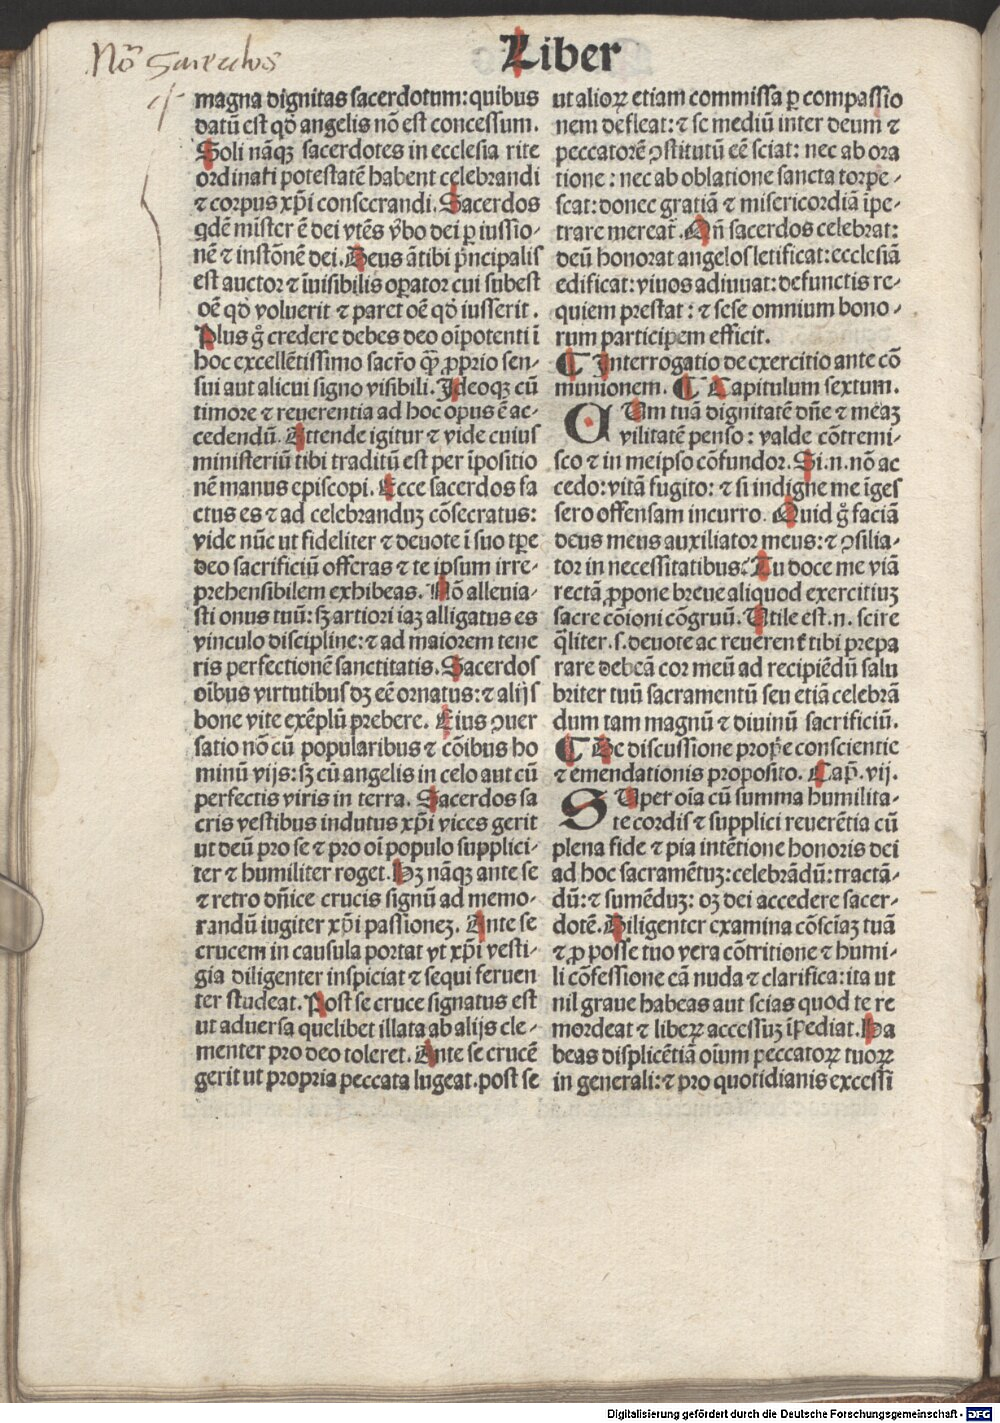 Liber
magna dignitas sacerdotum: quibus
datū est qd̓ angelis nō est concessum.
Soli nāqꝫ sacerdotes in ecclesia rite
ordinati potestatē habent celebrandi
⁊ corpus xp̄i consecrandi. Sacerdos
qdē mīster ē dei vtēs v̓bo dei ꝑ iussio-
nē ⁊ instōnē dei. Deus āt ibi pn̄cipalis
est auctor ⁊ īuisibilis oꝑator cui subest
oē qd̓ voluerit ⁊ paret oē qd̓ iusserit.
Plus gͦ credere debes deo oīpotenti ī
hoc excellētissimo sacr̄o q̄ꝫ ꝓprio sen-
sui aut alicui signo visibili. Ideoqꝫ cū
timore ⁊ reuerentia ad hoc opus ē ac-
cedendū. Attende igitur ⁊ vide cuius
ministeriū tibi traditū est per īpositio
nē manus episcopi. Ecce sacerdos fa
ctus es ⁊ ad celebranduꝫ cōsecratus:
vide nūc ut fideliter ⁊ deuote ī suo tꝑe
deo sacrificiū offeras ⁊ te ipsum irre-
prehensibilem exhibeas. Nō alleuia-
sti onus tuū: sꝫ artiori iaꝫ alligatus es
vinculo discipline: ⁊ ad maiorem tene
ris perfectionē sanctitatis. Sacerdos
oībus virtutibus dꝫ eē ornatus: ⁊ alijs
bone vite exēplū prebere. Eius ꝯuer
satio nō cū popularibus ⁊ cōibus ho
minū vijs: sꝫ cū angelis in celo aut cū
perfectis viris in terra. Sacerdos sa
cris vestibus indutus xp̄i vices gerit
ut deū pro se ⁊ pro oī populo supplici-
ter ⁊ humiliter roget. Hꝫ nāqꝫ ante se
⁊ retro dn̄ice crucis signū ad memo-
randū iugiter xp̄i passioneꝫ. Ante se
crucem in causula portat vt xp̄i vesti-
gia diligenter inspiciat ⁊ sequi feruen
ter studeat. Post se cruce signatus est
ut aduersa quelibet illata ab alijs cle-
menter pro deo toleret. Ante se crucē
gerit ut propria peccata lugeat. post se
ut alioꝝ etiam commissa ꝑ compassio
nem defleat: ⁊ se mediū inter deum ⁊
peccatorē ꝯstitutū eē sciat: nec ab ora
tione: nec ab oblatione sancta torpe-
scat: donec gratiā ⁊ misericordiā īpe-
trare mereat̄. Qn̄ sacerdos celebrat:
deū honorat angelos letificat: ecclesiā
edificat: viuos adiuuat: defunctis re-
quiem prestat: ⁊ sese omnium bono-
rum participem efficit.
¶ Interrogatio de exercitio ante cō
munionem. ¶ Capitulum sextum.
CUm tuā dignitatē dn̄e ⁊ meaꝫ
vilitatē penso: valde cōtremi-
sco ⁊ in meipso cōfundor. Si.n.nō ac
cedo: vitā fugito: ⁊ si indigne me īges
sero offensam incurro. Quid gͦ faciā
deus meus auxiliator meus: ⁊ ꝯsilia-
tor in necessitatibus: Tu doce me viā
rectā ꝓpone breue aliquod exercitiuꝫ
sacre cōioni cōgruū. Utile est.n. scire
q̄liter.s.deuote ac reuerent̄ tibi prepa
rare debeā cor meū ad recipiēdū salu
briter tuū sacramentū seu etiā celebrā
dum tam magnū ⁊ diuinū sacrificiū.
¶ De discussione prop̄e conscientie
⁊ emendationis proposito. Cap̄. vij.
SUper oīa cū summa humilita-
te cordis ⁊ supplici reuerētia cū
plena fide ⁊ pia intētione honoris dei
ad hoc sacramētuꝫ: celebrādū: tractā-
dū: ⁊ sumēduꝫ: oꝫ dei accedere sacer-
dotē. Diligenter examina cōsciaꝫ tuā
⁊ ꝓ posse tuo vera cōtritione ⁊ humi-
li cōfessione eā nuda ⁊ clarifica: ita ut
nil graue habeas aut scias quod te re
mordeat ⁊ liberꝝ accessuꝫ īpediat. Ha
beas displicētiā oīum peccatoꝝ tuoꝝ
in generali: ⁊ pro quotidianis excessi
Digitalisierung gefördert durch die Deutsche Forschungsgemeinschaft - DFG